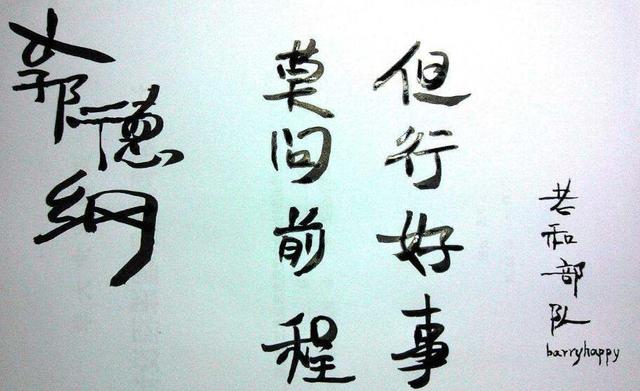 共和部队
barryhappy
但行好事
莫问前程
郭德纲